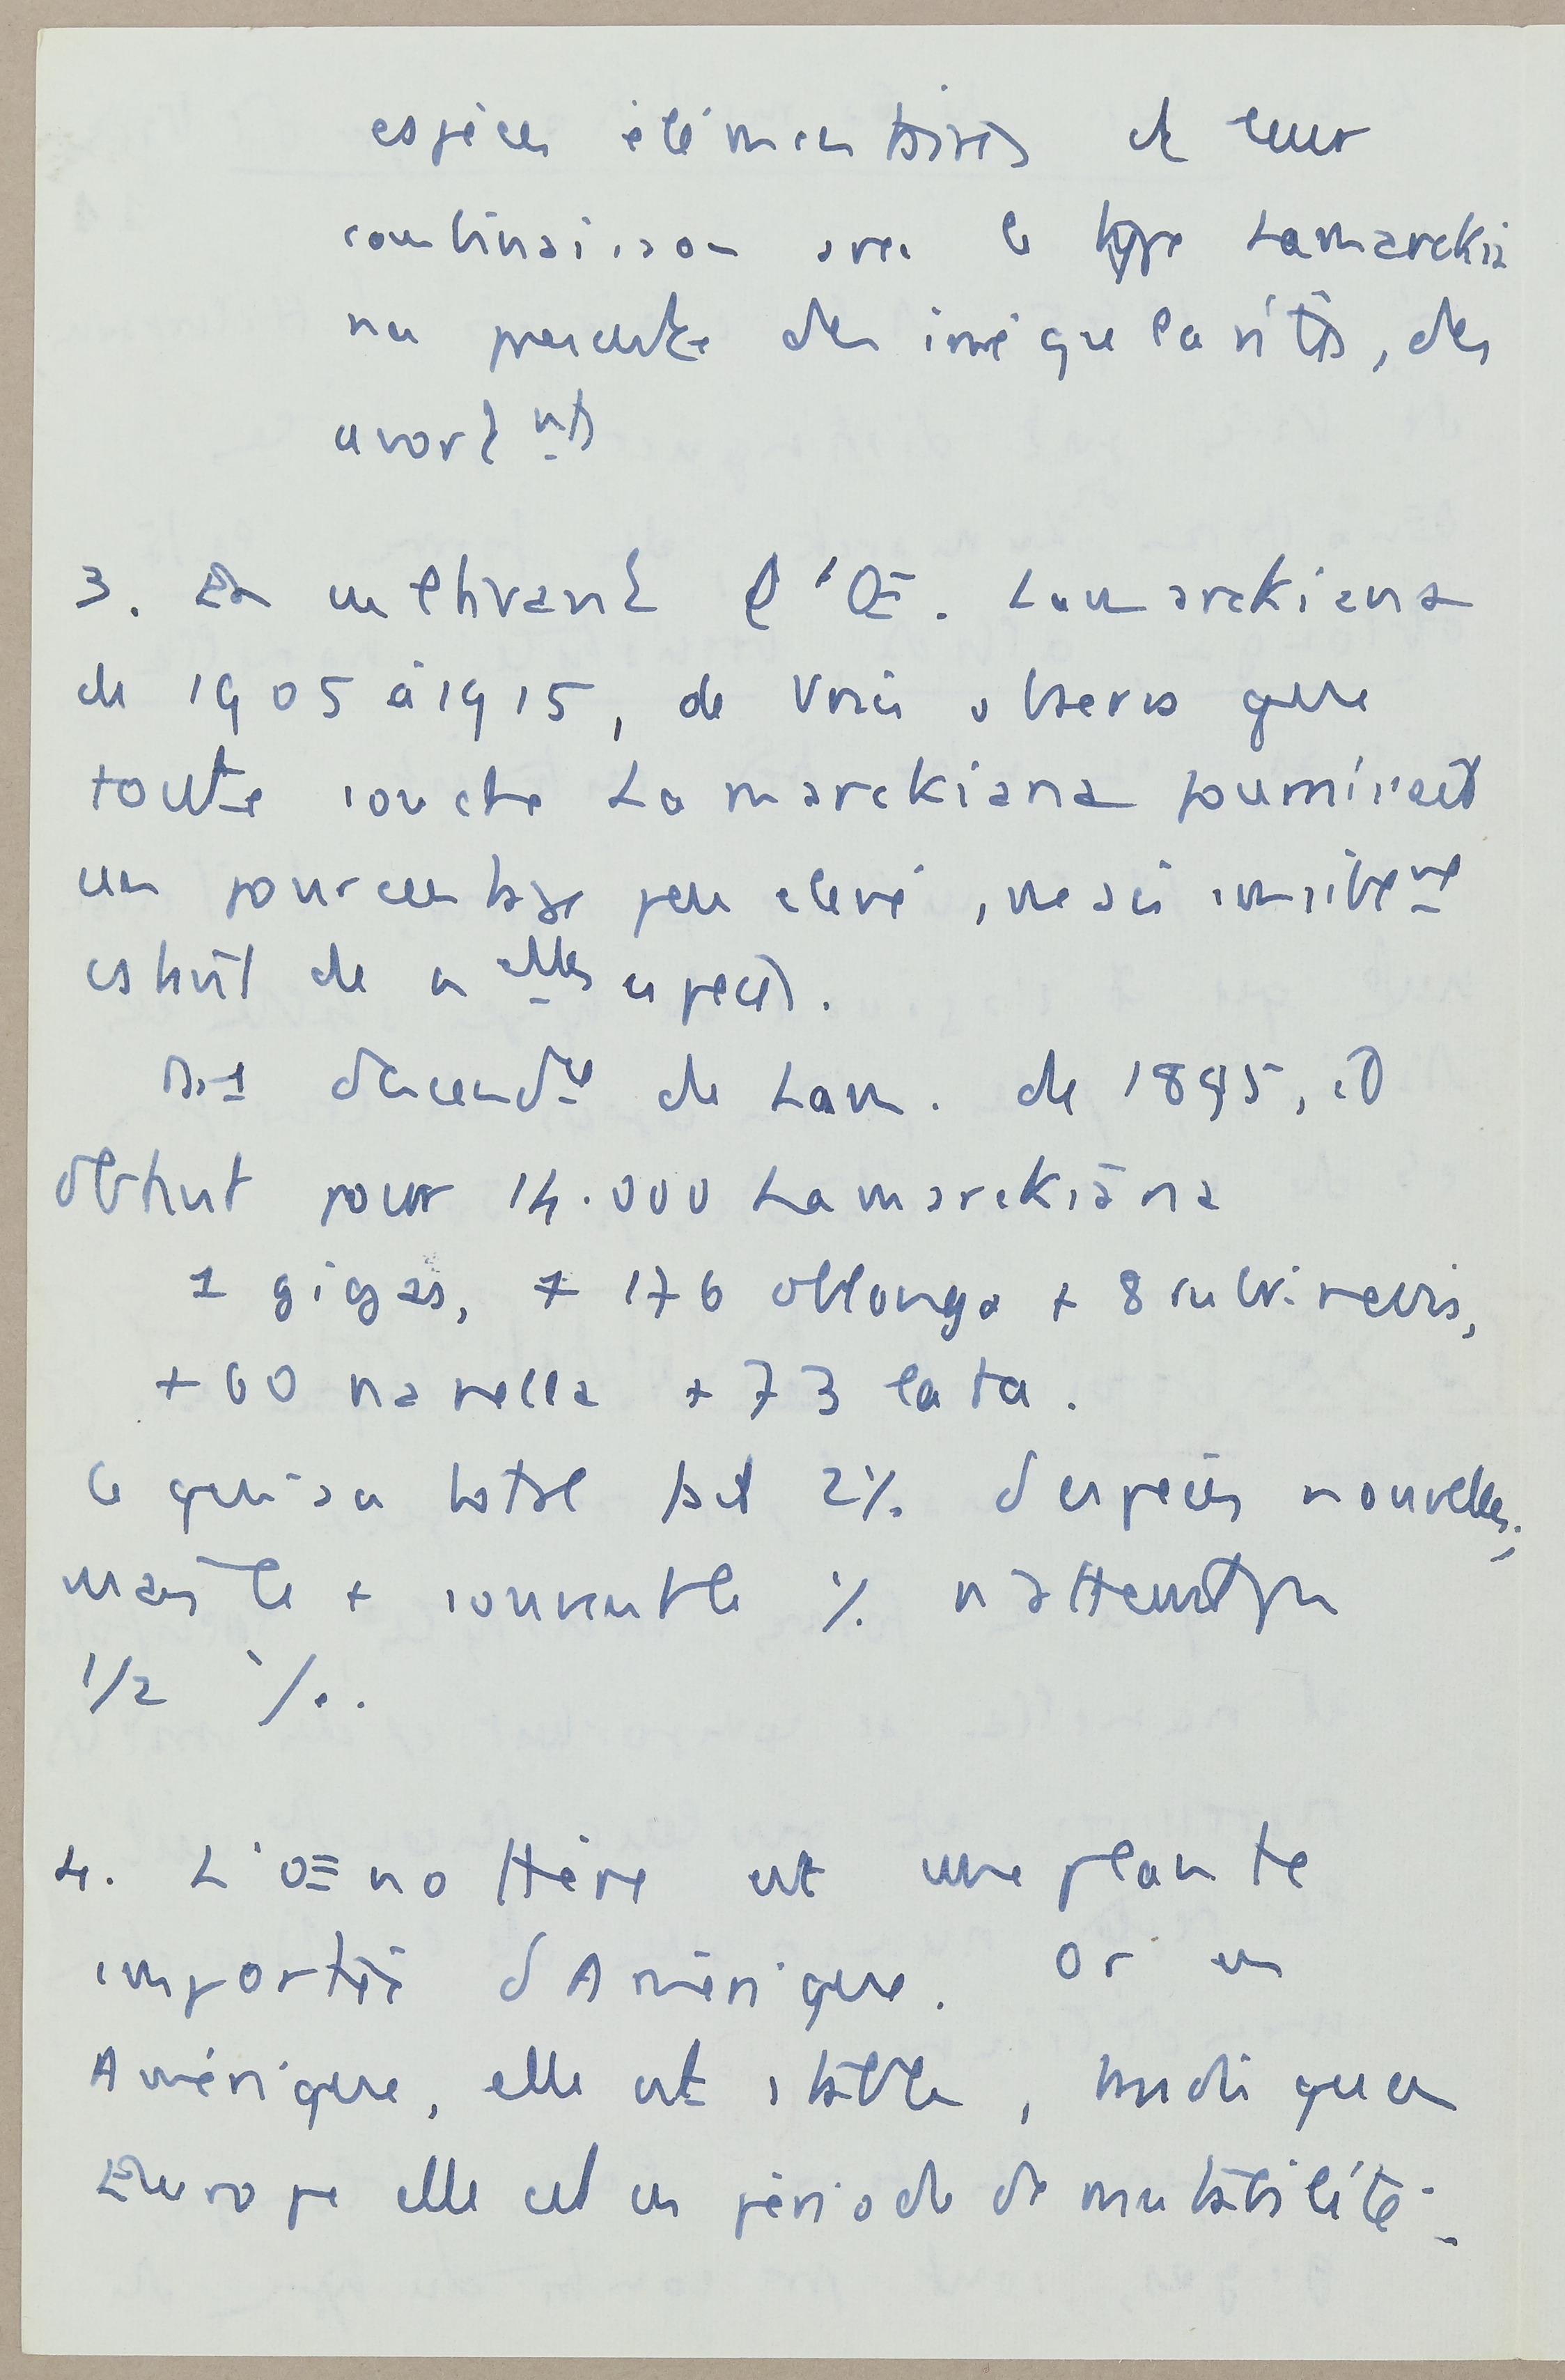 espèces élémentaires et leur
combinaison avec le type Lamarckia
na présente des irrégularités, des
avortnts
3. En cultivant l'OE. Lamarckiana
de 1905 à 1915, de Vries observa que
toute souche Lamarckiana fournissait
un pourcentage peu élevé, mais
de nelles espèces.
descendce de Lam. de 1895, il
obtint pour 14.000 Lamarckiana
1 gigas, + 176 oblonga + 8 rubrinervis,
+ 60 nanella + 73 lata.
Ce qui au total fait 2% d'espèces nouvelles;
mais le + souvent le % n'atteint pas
1/2 %.
4. L'OEnothère est une plante
importée d'Amérique. Or en
Amérique, elle est stable, tandis qu'en
Europe elle est en période de mutabilité.